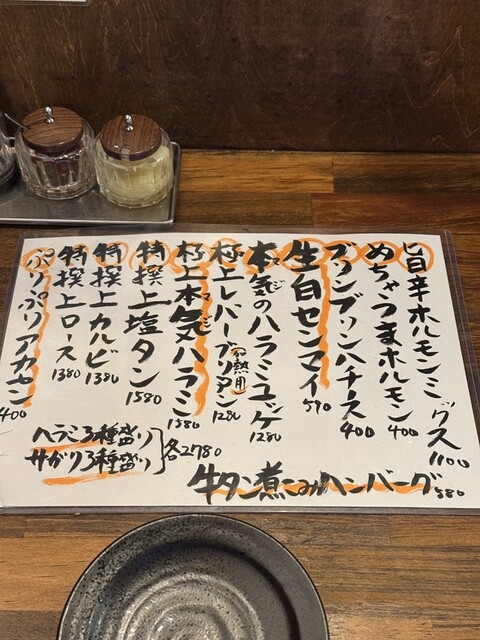 旨辛ホルモンミックス 1100
めちゃうまホルモン 400
ブツンブツンハチノス 400
生白センマイ 590
本気のハラミユッケ 1280
マジ
極上レバーブリアン(加熱用) 1280
極上本気ハラミ 1580
マジ
特撰上塩タン 1580
特撰上カルビ 1380
特撰上ロース 1380
ぷりぷりアカセン 400
ヘラミ3種盛り
サガリ3種盛り
各2780
牛タン煮こみハンバーグ 580